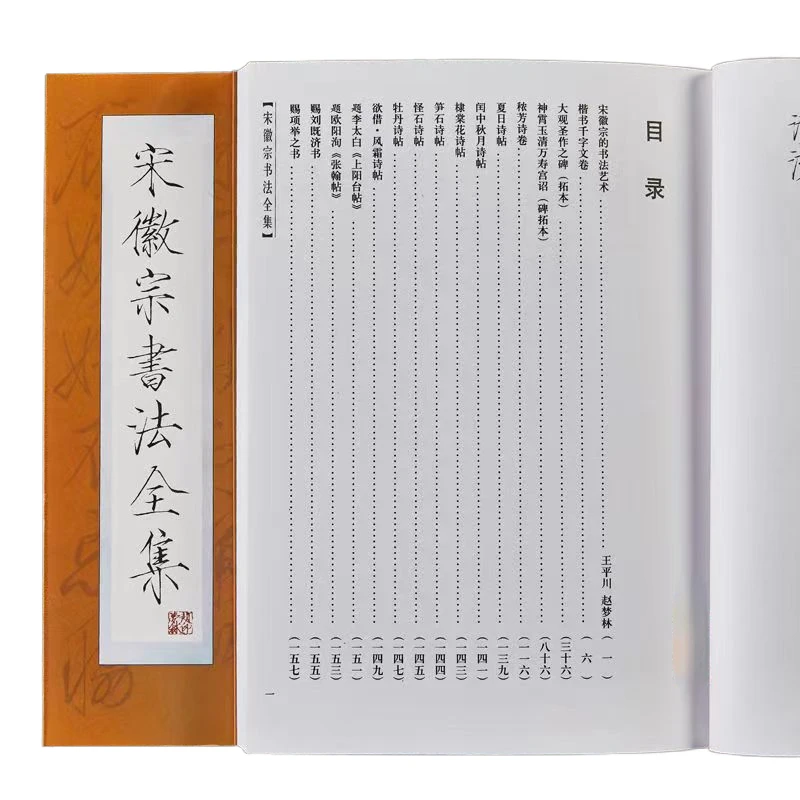 宋徽宗書法全集
目录
宋徽宗的书法艺术……王平川 赵梦林（一）
楷书千字文卷……（六）
大观圣作之碑（拓本）……（三十六）
神霄玉清万寿宫诏（碑拓本）……（八十六）
秾芳诗卷……（一一六）
夏日诗帖……（一三九）
闰中秋月诗帖……（一四一）
棣棠花诗帖……（一四三）
笋石诗帖……（一四四）
怪石诗帖……（一四五）
牡丹诗帖……（一四七）
欲借·风霜诗帖……（一四九）
题李太白《上阳台帖》……（一五一）
题欧阳洵《张翰帖》……（一五三）
赐刘既济书……（一五五）
赐项举之书……（一五七）
【宋徽宗书法全集】
一